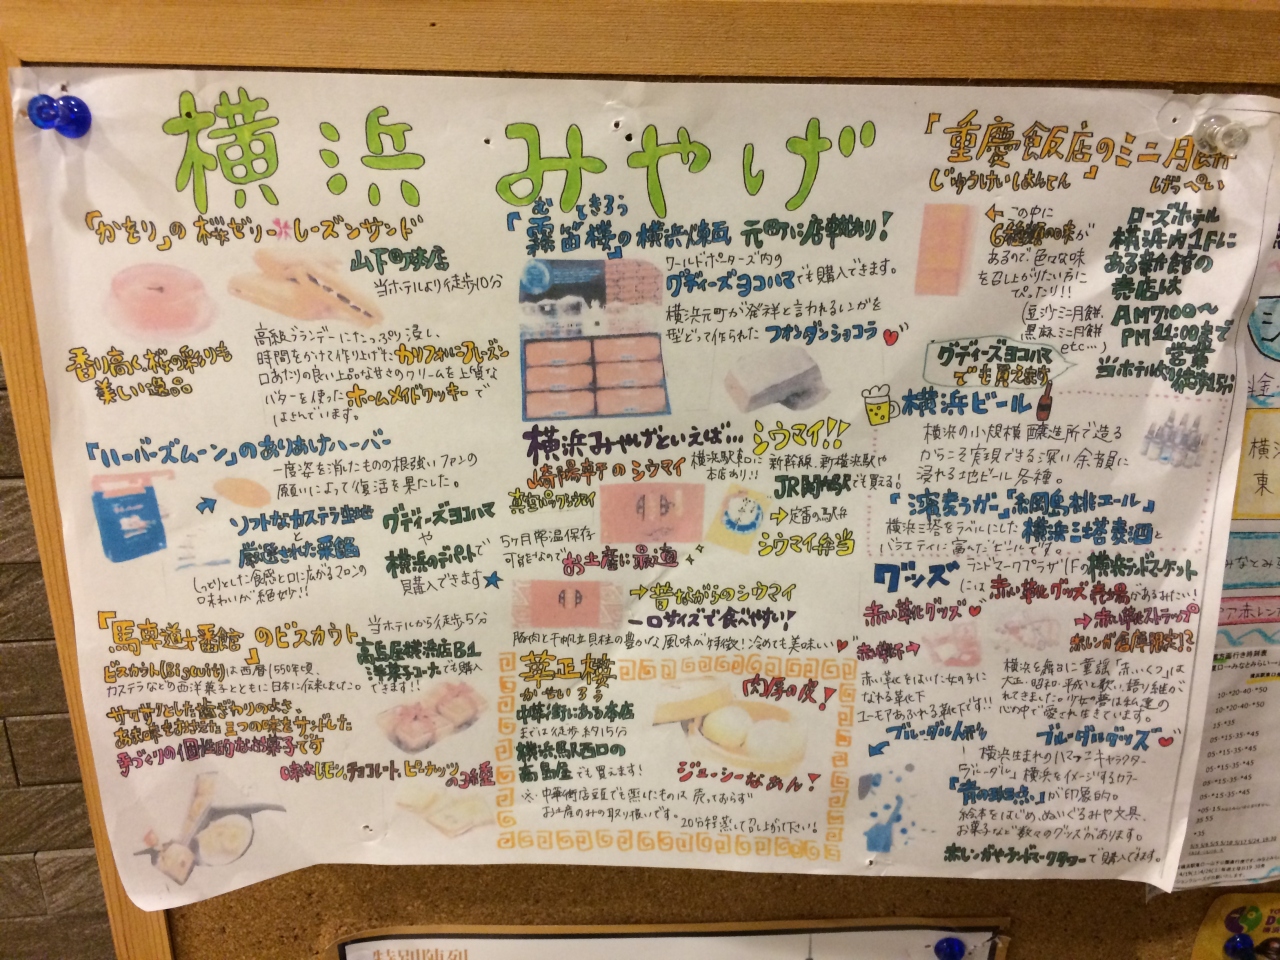 横浜みやげ
「かをり」の桜ゼリー レーズンサンド
山下町本店
当ホテルより徒歩10分
香り高く、桜の彩りも
美しい逸品
高級ブランデーにたっぷり浸し、
時間をかけて作り上げたカリフォルニアレーズン
口あたりの良い上品な甘さのクリームを上質な
バターを使ったホームメイドクッキーで
はさんでいます。
「ハーバーズムーン」のありあけハーバー
一度姿を消したものの根強いファンの
願いによって復活を果した。
ソフトなカステラ生地
と
厳選された栗餡
しっとりとした食感と口に広がるマロンの
味わいが絶妙!!
グディーズヨコハマ
や
横浜のデパートで
購入できます★
「馬車道十番館」のビスカウト
当ホテルから徒歩5分
高島屋横浜店B1
洋菓子コーナーでも購入
できます!!
ビスカウト(Biscuit)は西暦1550年頃、
カステラなどの西洋菓子とともに日本に伝来しました。
三つの味をサンドした
手づくりの個性的なお菓子です
味はレモン、チョコレート、ピーナッツ
の3種
むてきろう
「霧笛楼」の横浜煉瓦 元町に店舗あり!
ワールドポーターズ内の
グディーズヨコハマでも購入できます。
横浜元町が発祥と言われるレンガを
型どって作られたフォンダンショコラ♥
横浜みやげといえば… シウマイ!!
崎陽軒のシウマイ
横浜駅東口に
本店あり!!
新幹線 新横浜駅や
JR関内駅でも買える!
真空パックシウマイ
5ヶ月常温保存
可能なので
お土産に最適
→定番の駅弁
シウマイ弁当
→昔ながらのシウマイ
一口サイズで食べやすい!
豚肉と干帆立貝柱の豊かな風味が特徴!冷めても美味しい♥
華正楼
かせいろう
中華街にある本店
までは徒歩約15分
横浜駅西口の
高島屋でも買えます!
※中華街店頭でも蒸したものは売っておらず
お土産のみの取り扱いです。
20分程蒸して召し上がって下さい!
肉厚の皮!
ジューシーなあん!
「重慶飯店」のミニ月餅
じゅうけいはんてん
げっぺい
←この中に
6種類の味が
あるので色々な味
を召し上がりたい方に
ぴったり!!
(豆沙ミニ月餅、
黒麻ミニ月餅
etc…)
ローズホテル
横浜内1Fに
ある新館の
売店は
AM7:00〜
PM11:00まで
営業
グディーズヨコハマ
でも買えます
横浜ビール
横浜の小規模醸造所で造る
からこそ実現できる深い余韻に
浸れる地ビール各種。
横浜三塔をラベルにした
横浜三塔麦酒と
バラエティに富んだビールです。
グッズ
ランドマークプラザ1Fの横浜ランドマーケット
には 赤い靴グッズ売り場があるみたい!
赤い靴グッズ♥
→赤い靴ストラップ
赤レンガ倉庫限定!?
赤い靴下→
赤い靴をはいた女の子に
なれる靴下
ユーモアあふれる靴下です!!
横浜を舞台に童謡「赤いくつ」は
大正・昭和・平成と歌い、語り継が
れてきました。少女の姿は私達の
心の中で愛され生きています。
ブルーダルグッズ♥
横浜生まれのハマっこキャラクター
「ブルーダル」横浜をイメージするカラー
が印象的。
絵本をはじめ、ぬいぐるみや文具、
お菓子など数々のグッズがあります。
赤レンガやランドマークタワーで購入できます。
特別陳列